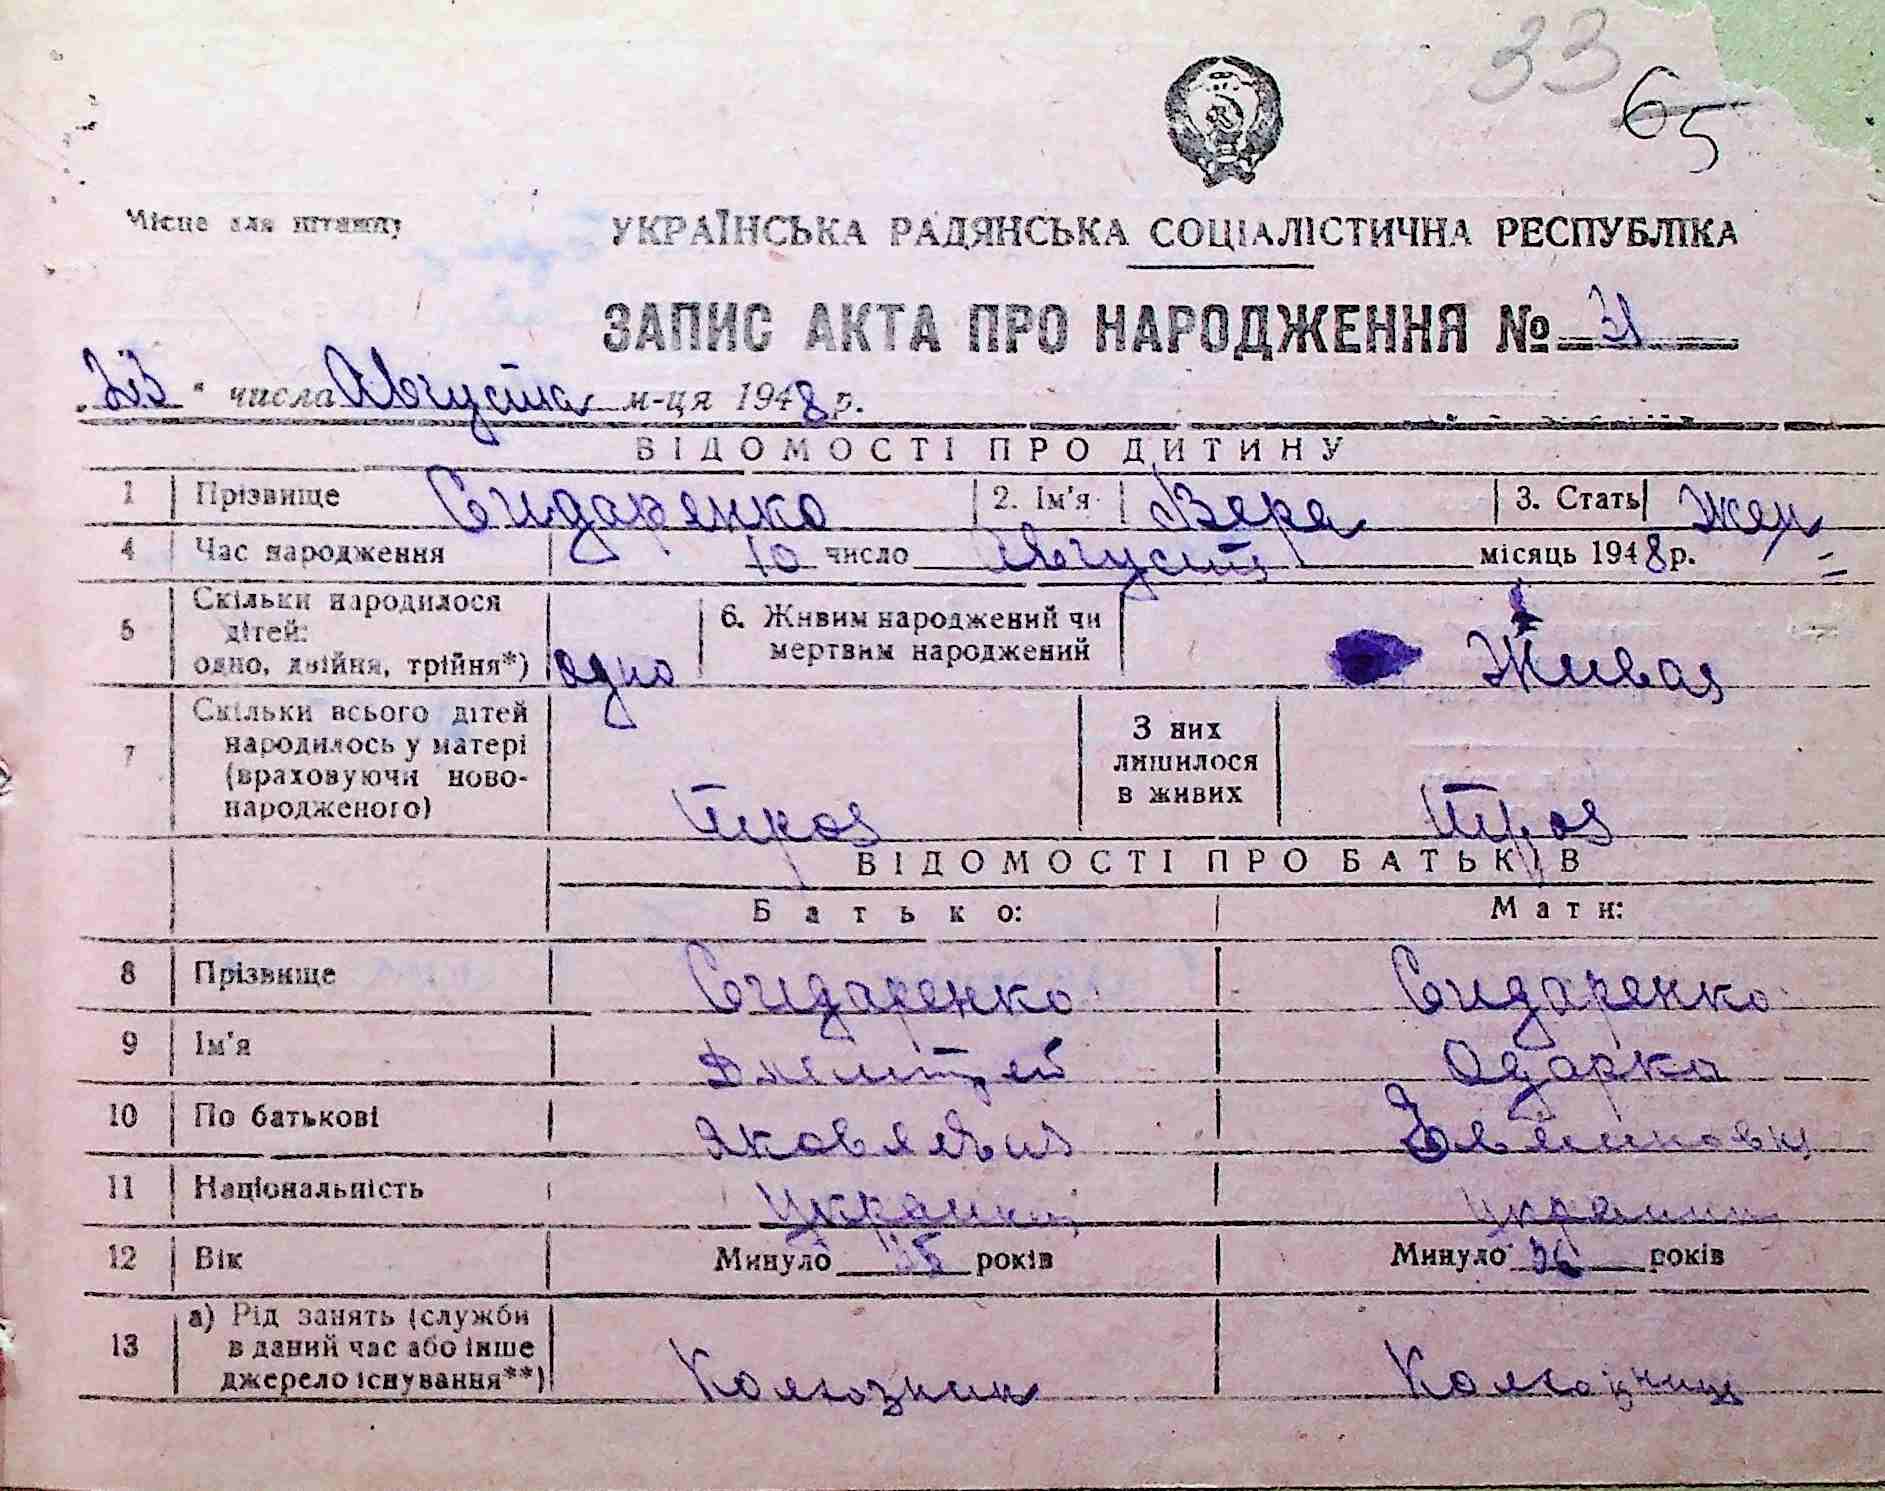 33
65
Місце для штампу
УКРАЇНСЬКА РАДЯНСЬКА СОЦІАЛІСТИЧНА РЕСПУБЛІКА
ЗАПИС АКТА ПРО НАРОДЖЕННЯ № 31
„23" числа Августа м-ця 1948 р.
ВІДОМОСТІ ПРО ДИТИНУ
1 Прізвище Сидаренко 2. Ім'я Вера 3. Стать жен
4 Час народження 10 число Август місяць 1948 р.
5 Скільки народилося
дітей:
одно, двійня, трійня*) одно 6. Живим народжений чи
мертвим народжений Живая
7 Скільки всього дітей
народилось у матері
(враховуючи ново-
народженого) трое З них
лишилося
в живих трое
ВІДОМОСТІ ПРО БАТЬКІВ
Батько: Мати:
8 Прізвище Сидаренко Сидаренко
9 Ім'я Одарка
10 По батькові Яковлевич
11 Національність
12 Вік Минуло 35 років Минуло 36 років
13 а) Рід занять (служби
в даний час або інше
джерело існування**) Колхозник Колхозница